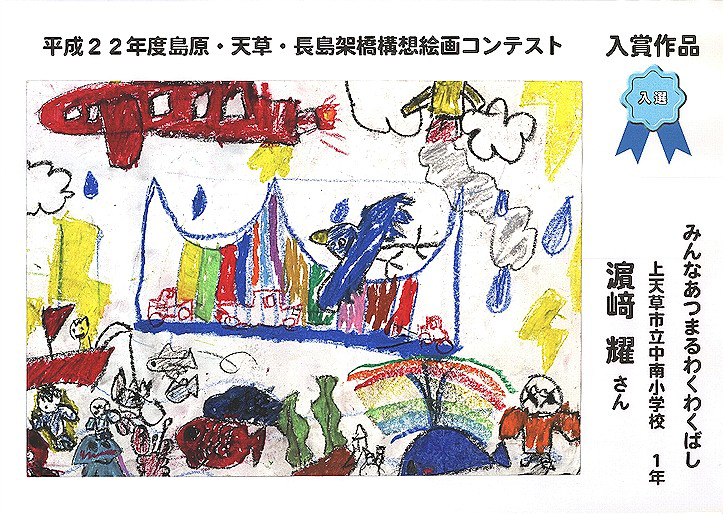 平成２２年度島原・天草・長島架橋構想絵画コンテスト
入賞作品
入選
みんなあつまるわくわくばし
上天草市立中南小学校　1年
濵﨑 耀 さん